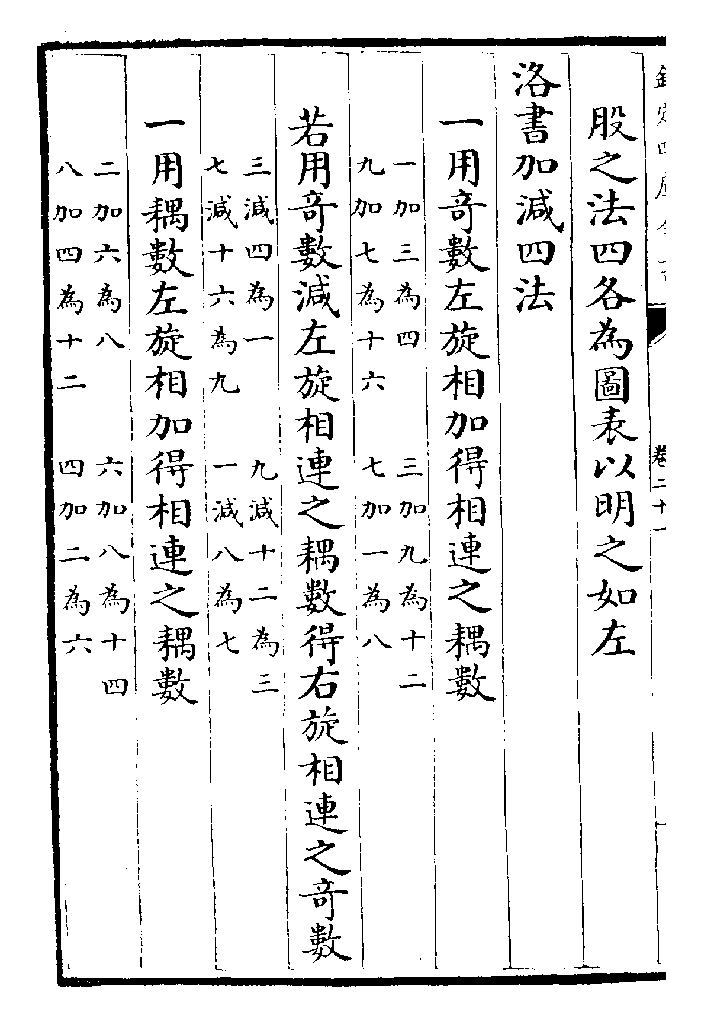 欽定四庫全書
卷二十一
股之法四各為圖表以明之如左
洛書加減四法
一用竒數左旋相加得相連之耦數
一加三為四 三加九為十二
九加七為十六 七加一為八
若用竒數減左旋相連之耦數得右旋相連之竒數
三減四為一 九減十二為三
七減十六為九 一減八為七
一用耦數左旋相加得相連之耦數
二加六為八 六加八為十四
八加四為十二 四加二為六